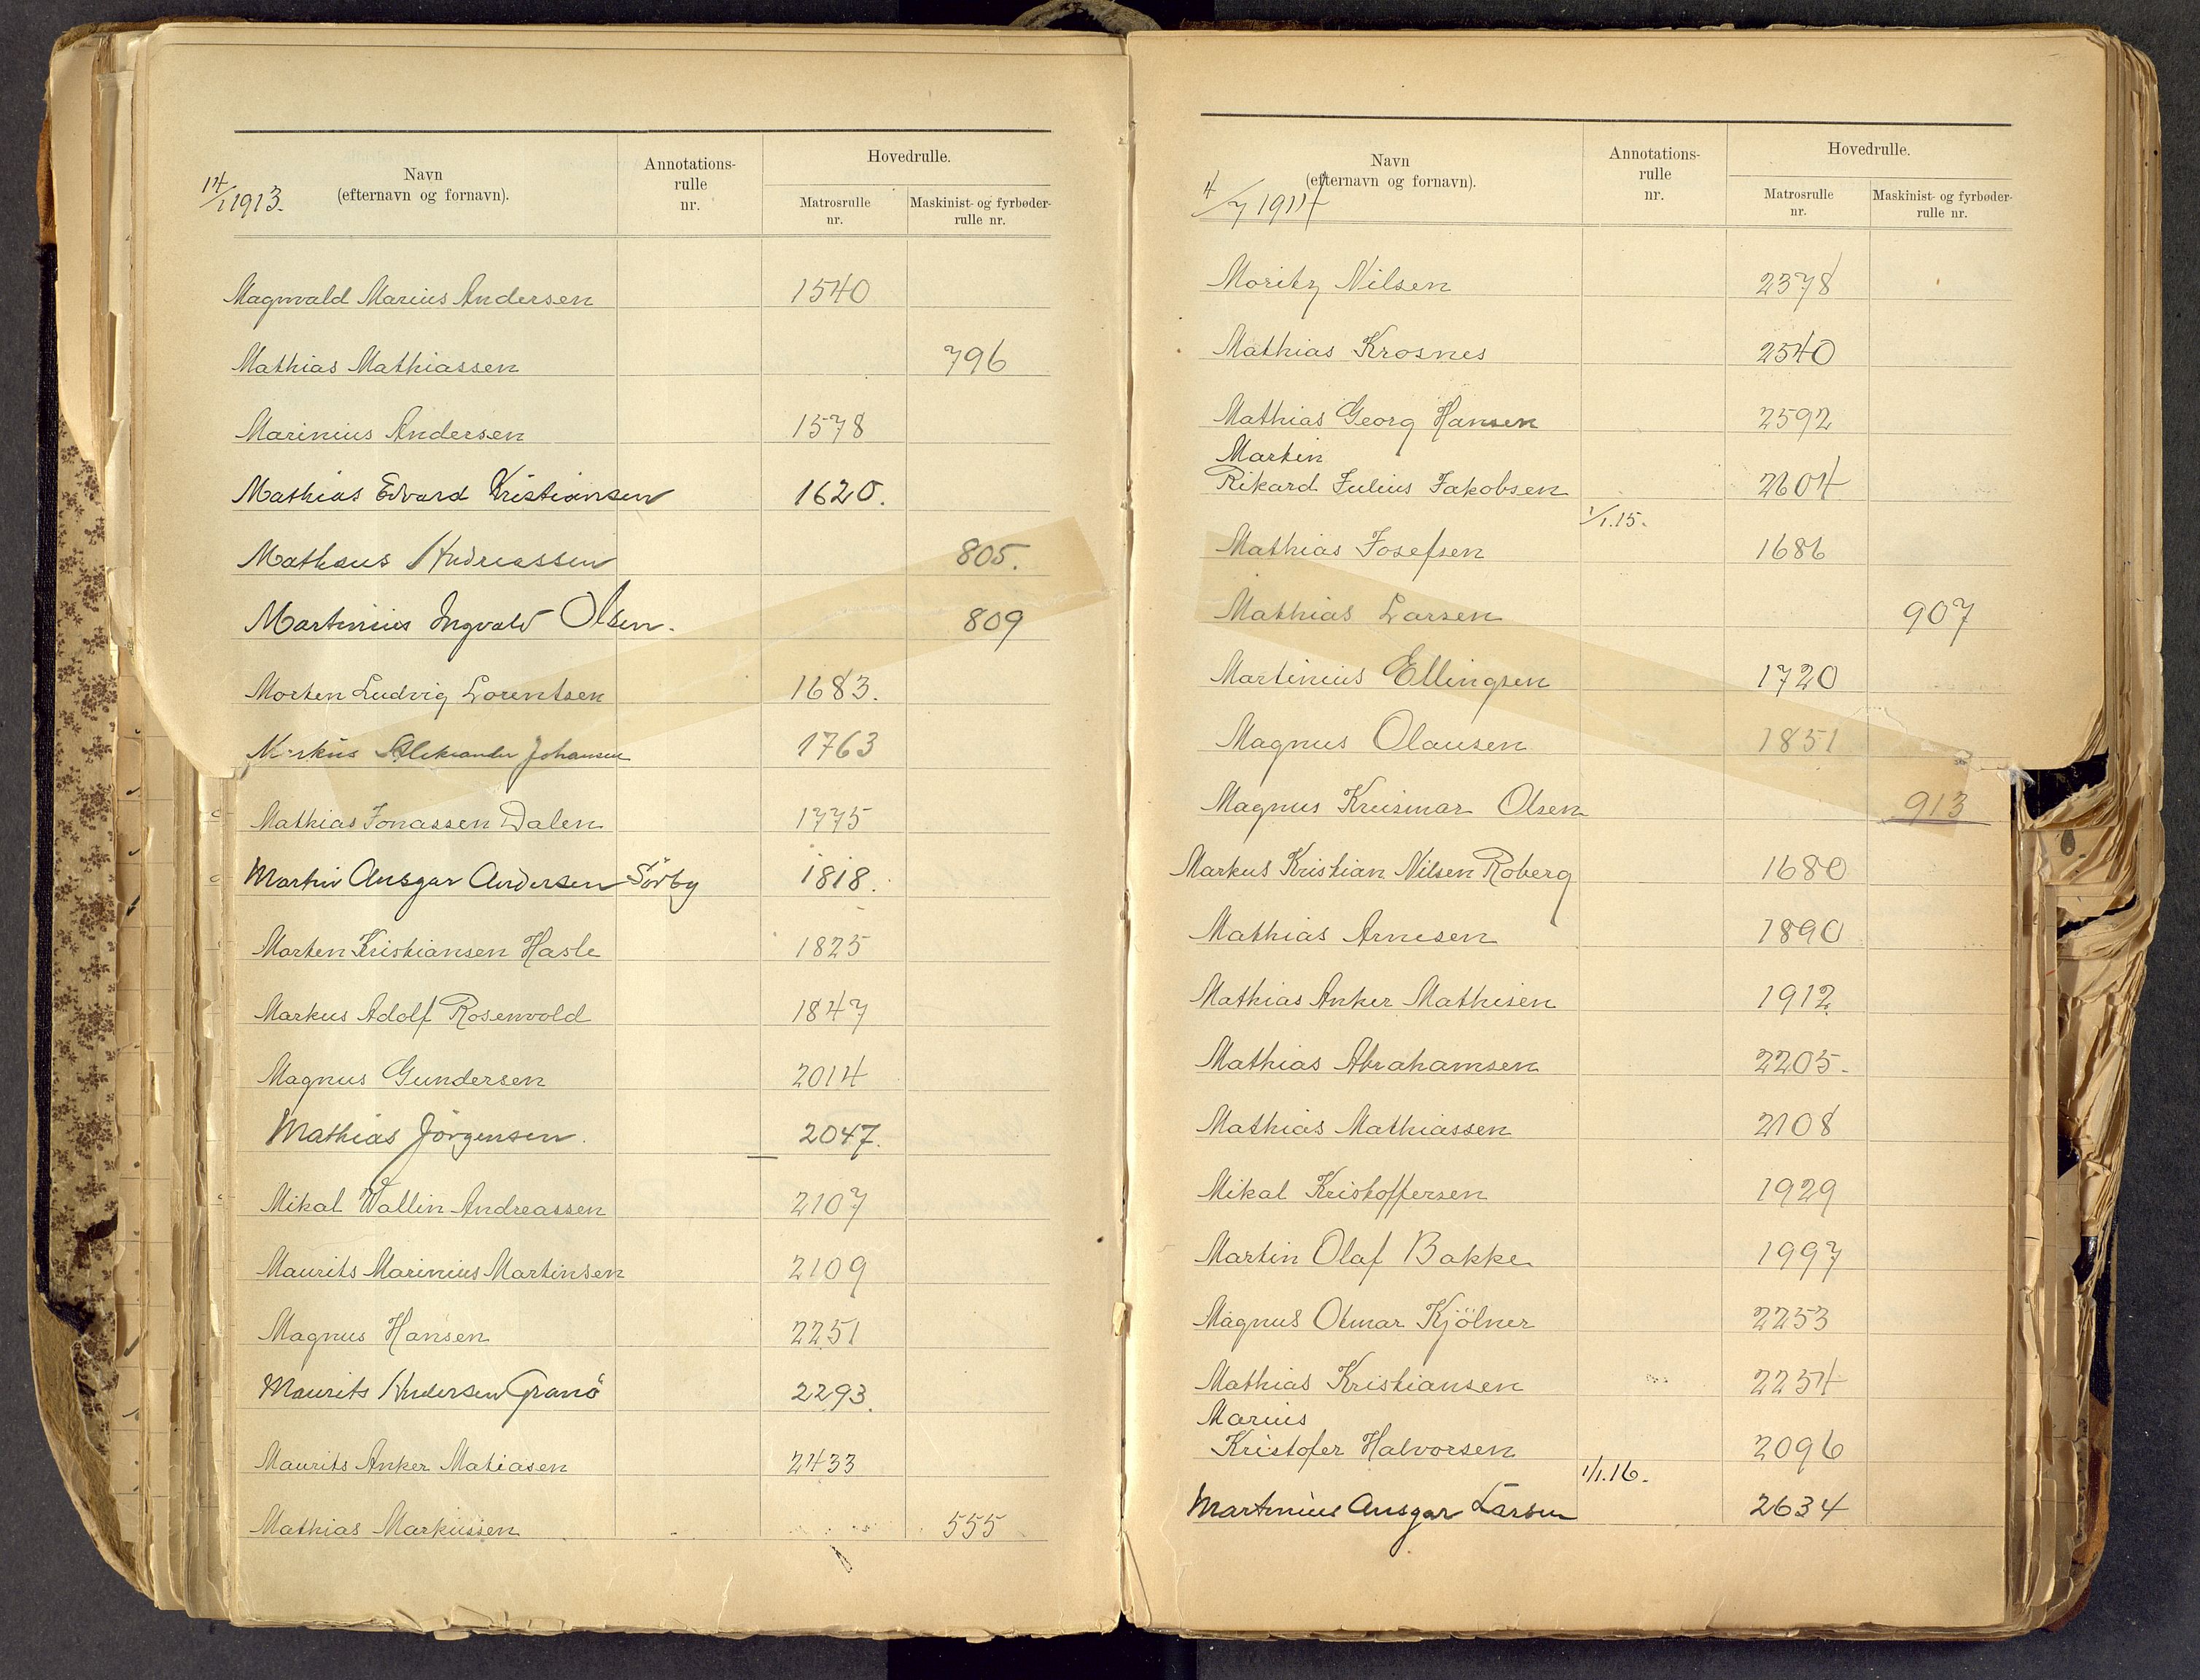 14/1 1913.
Navn
(efternavn og fornavn).
Annotations-
rulle
nr.
Hovedrulle.
Matrosrulle
nr.
Maskinist- og fyrbøder-
rulle nr.
Magnvald Marius Andersen 1540
Mathias Mathiassen 796
Marinius Andersen 1578
Mathias Edvard Kristiansen 1620.
Mathæus Andreassen 805.
Martinius Ingvald Olsen. 809
Morten Ludvig Lorentsen 1683.
Markus Aleksander Johansen 1763
Mathias Jonassen Dalen 1775
Martin Ansgar Andersen Sörby 1818.
Morten Kristiansen Hasle 1825
Markus Adolf Rosenvold 1847
Magnus Gundersen 2014
Mathias Jörgensen. 2047.
Mikal Wallin Andreassen 2107
Maurits Marinius Martinsen 2109
Magnus Hansen 2251
Maurits Andersen Granö 2293.
Maurits Anker Matiasen 2433
Mathias Markussen 555
4/7 1914
Navn
(efternavn og fornavn).
Annotations-
rulle
nr.
Hovedrulle.
Matrosrulle
nr.
Maskinist- og fyrbøder-
rulle nr.
Moritz Nilsen 2378
Mathias Krosnes 2540
Mathias Georg Hansen 2592
Martin
Rikard Julius Jakobsen 2604
1/1.15.
Mathias Josefsen 1686
Mathias Larsen 907
Martinius Ellingsen 1720
Magnus Olausen 1851
Magnus Kreismar Olsen 913
Markus Kristian Nilsen Roberg 1680
Mathias Arnesen 1890
Mathias Anker Mathisen 1912
Mathias Abrahamsen 2205.
Mathias Mathiassen 2108
Mikal Kristoffersen 1929
Martin Olaf Bakke 1997
Magnus Otmar Kjölner 2253
Mathias Kristiansen 2254
Marius
Kristofer Halvorsen 2096
1/1.16.
Martinius Ansgar Larsen 2634